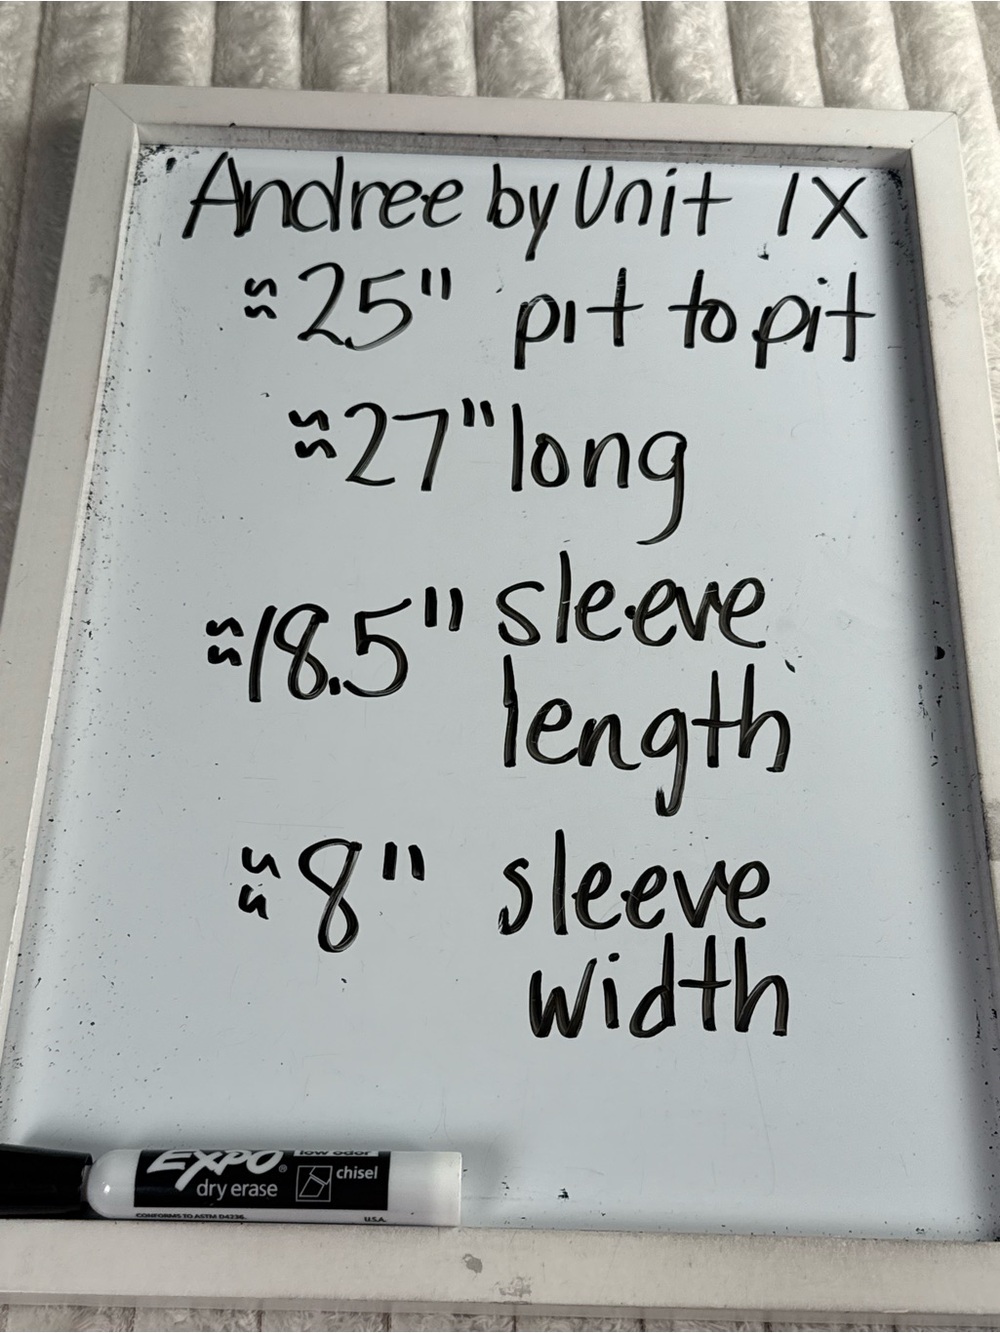 Andree by Unit 1X
≈25" pit to pit
≈27" long
≈18.5" sleeve
length
≈8" sleeve
width
EXPO® low odor
dry erase chisel
CONFORMS TO ASTM D4236 U.S.A.